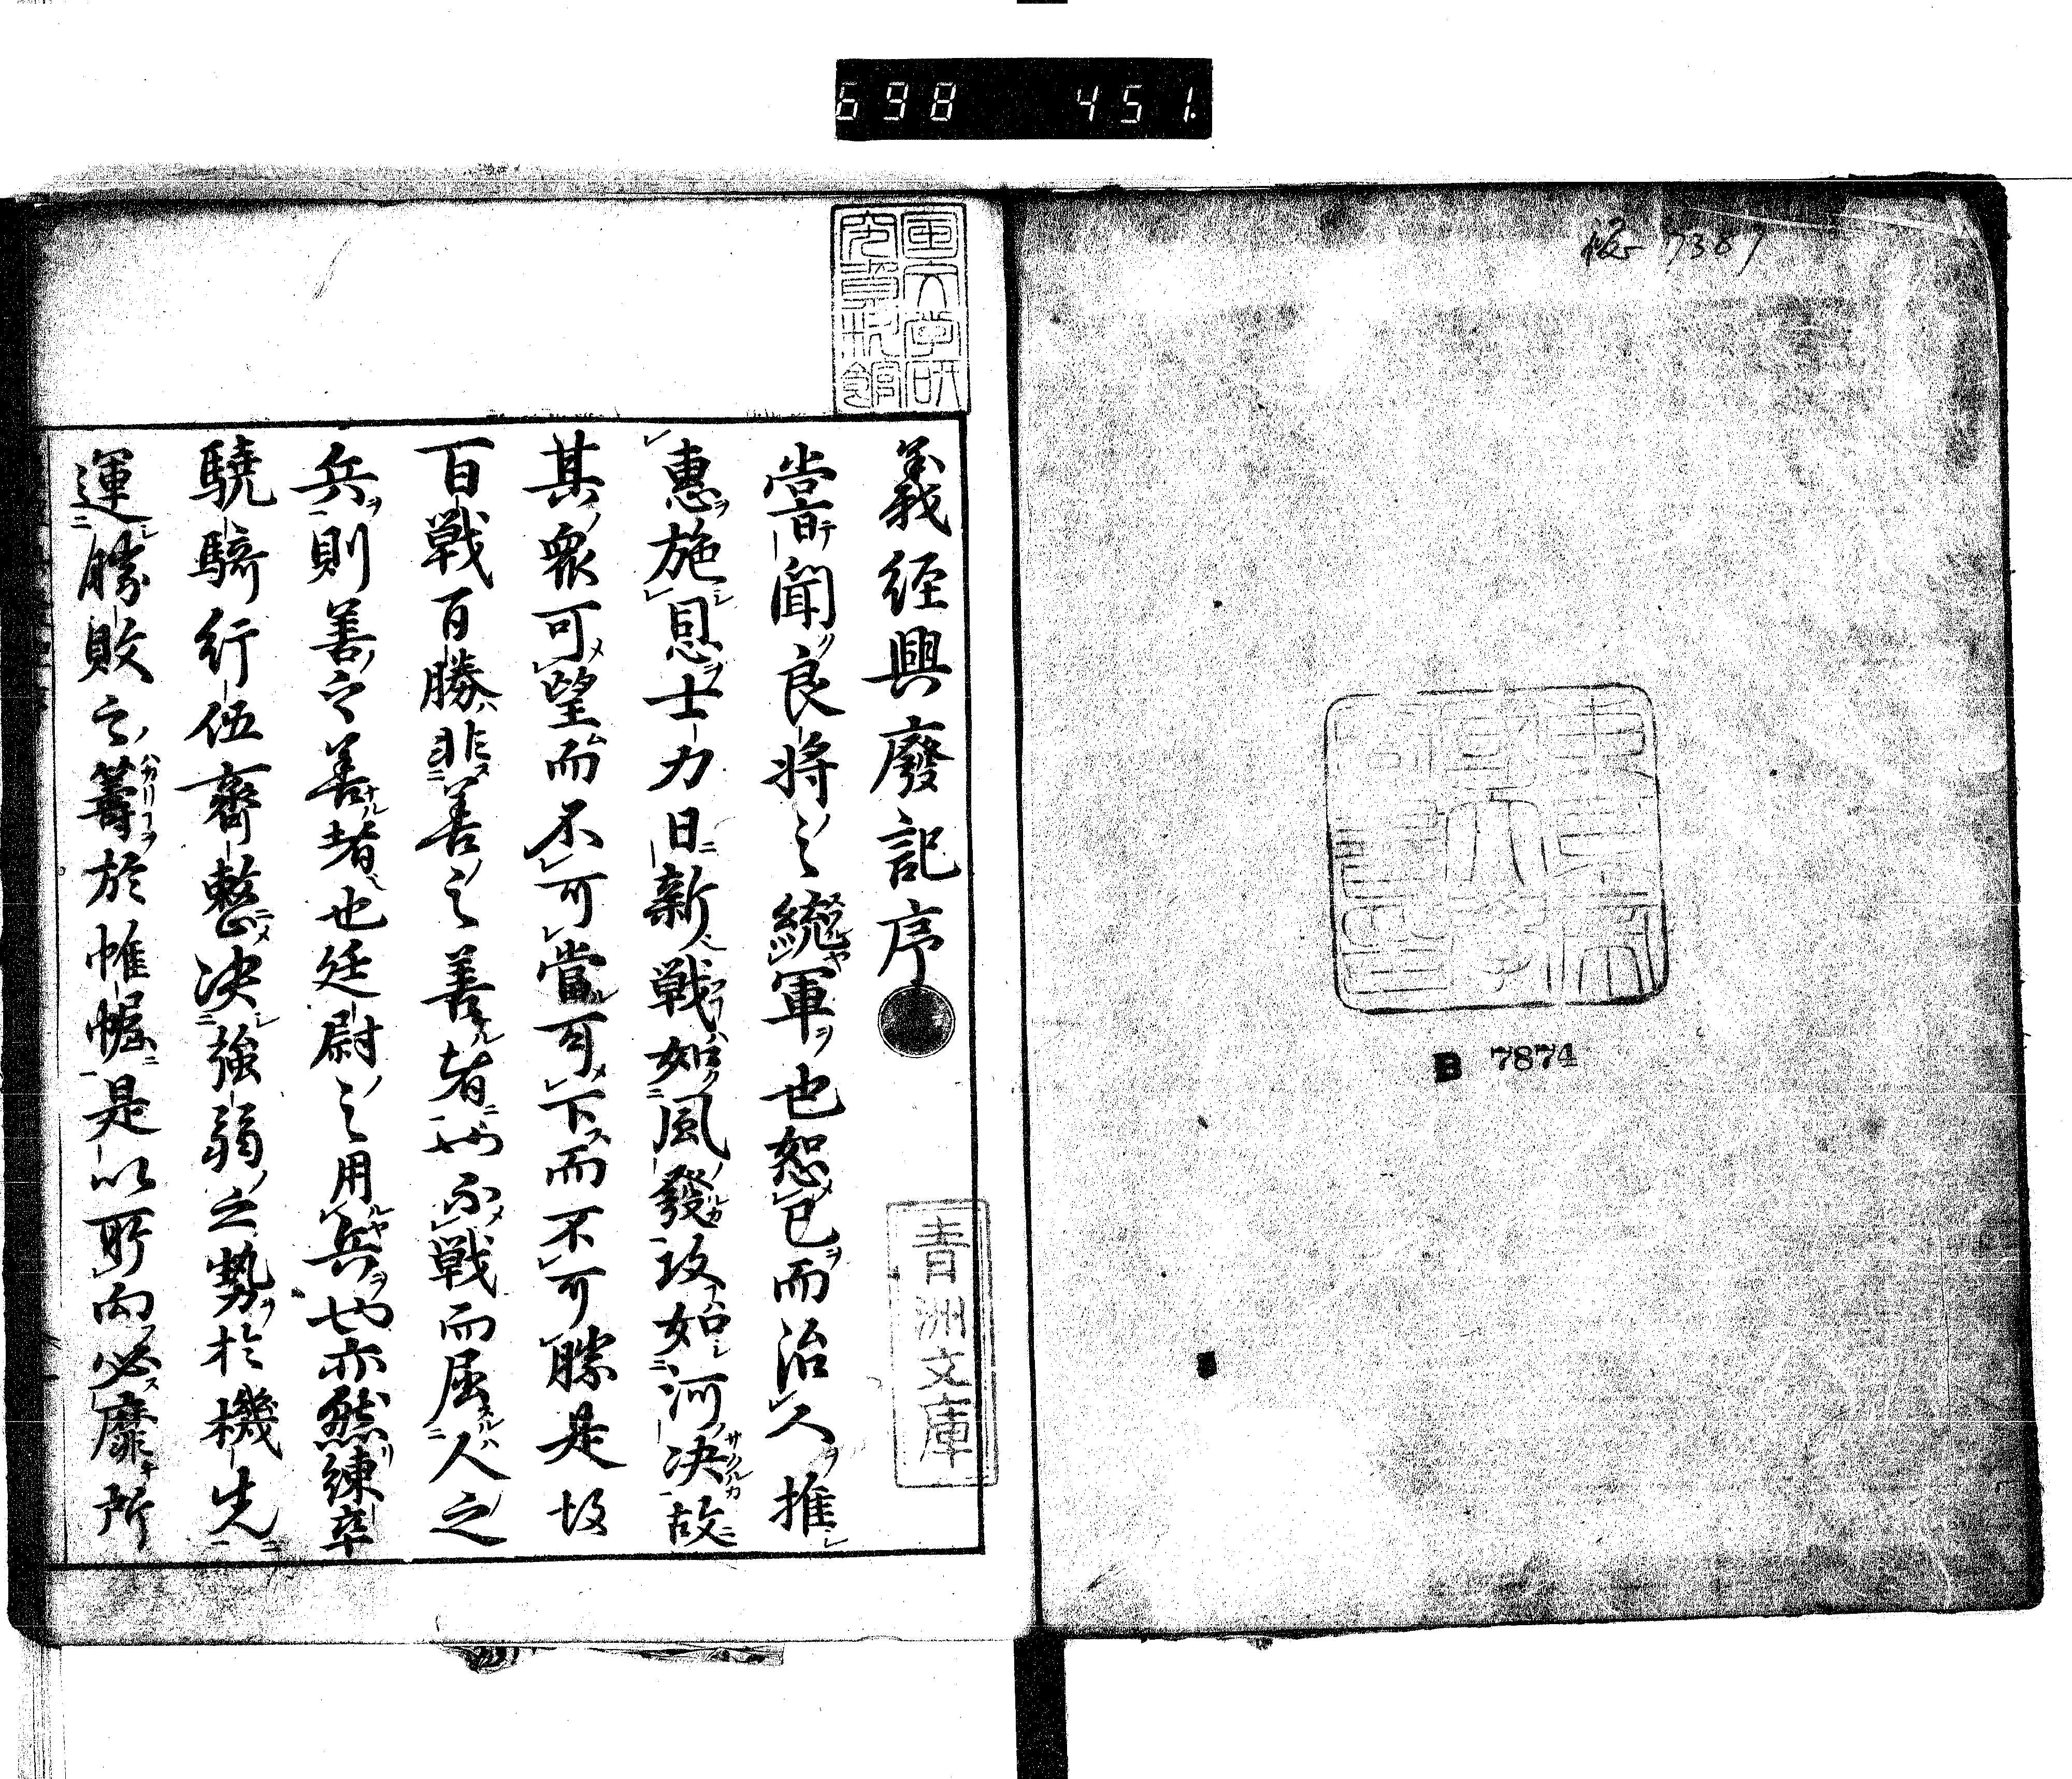 698 451.
7387
東京帝
國大學
圖書印
B 7874
國文学研
究資料館
青洲文庫
義経興廢記序
嘗聞良将之總軍也恕已而治人推
惠施恩士力日新戦如風發攻如河决故
其衆可望而不可當可下而不可勝是故
百戦百勝非善之善者也不戦而屈人之
兵則善之善者也廷尉之用兵也亦然練卒
驍騎行伍齊整决強弱之勢於機先
運勝敗之籌於帷幄是以所向必靡所